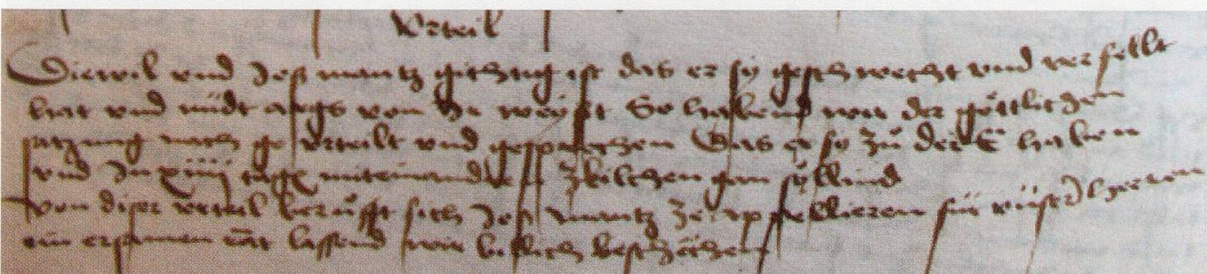 Urteil
Diewil und Jos mantz gichtig ist das er sy geschwecht und verfellt
hat und nüdt args von Ir weyst So habend wir der göttlichen
satzung nach geurteilt und gesprochen Das er sy zů der E haben
und In xiiij tagen miteinandren zkilchen gan söllind
Von diser urteil berůfft sich Jos mantz ze appellieren für unser herren
ein ersamen rat lassend wir billich beschächen